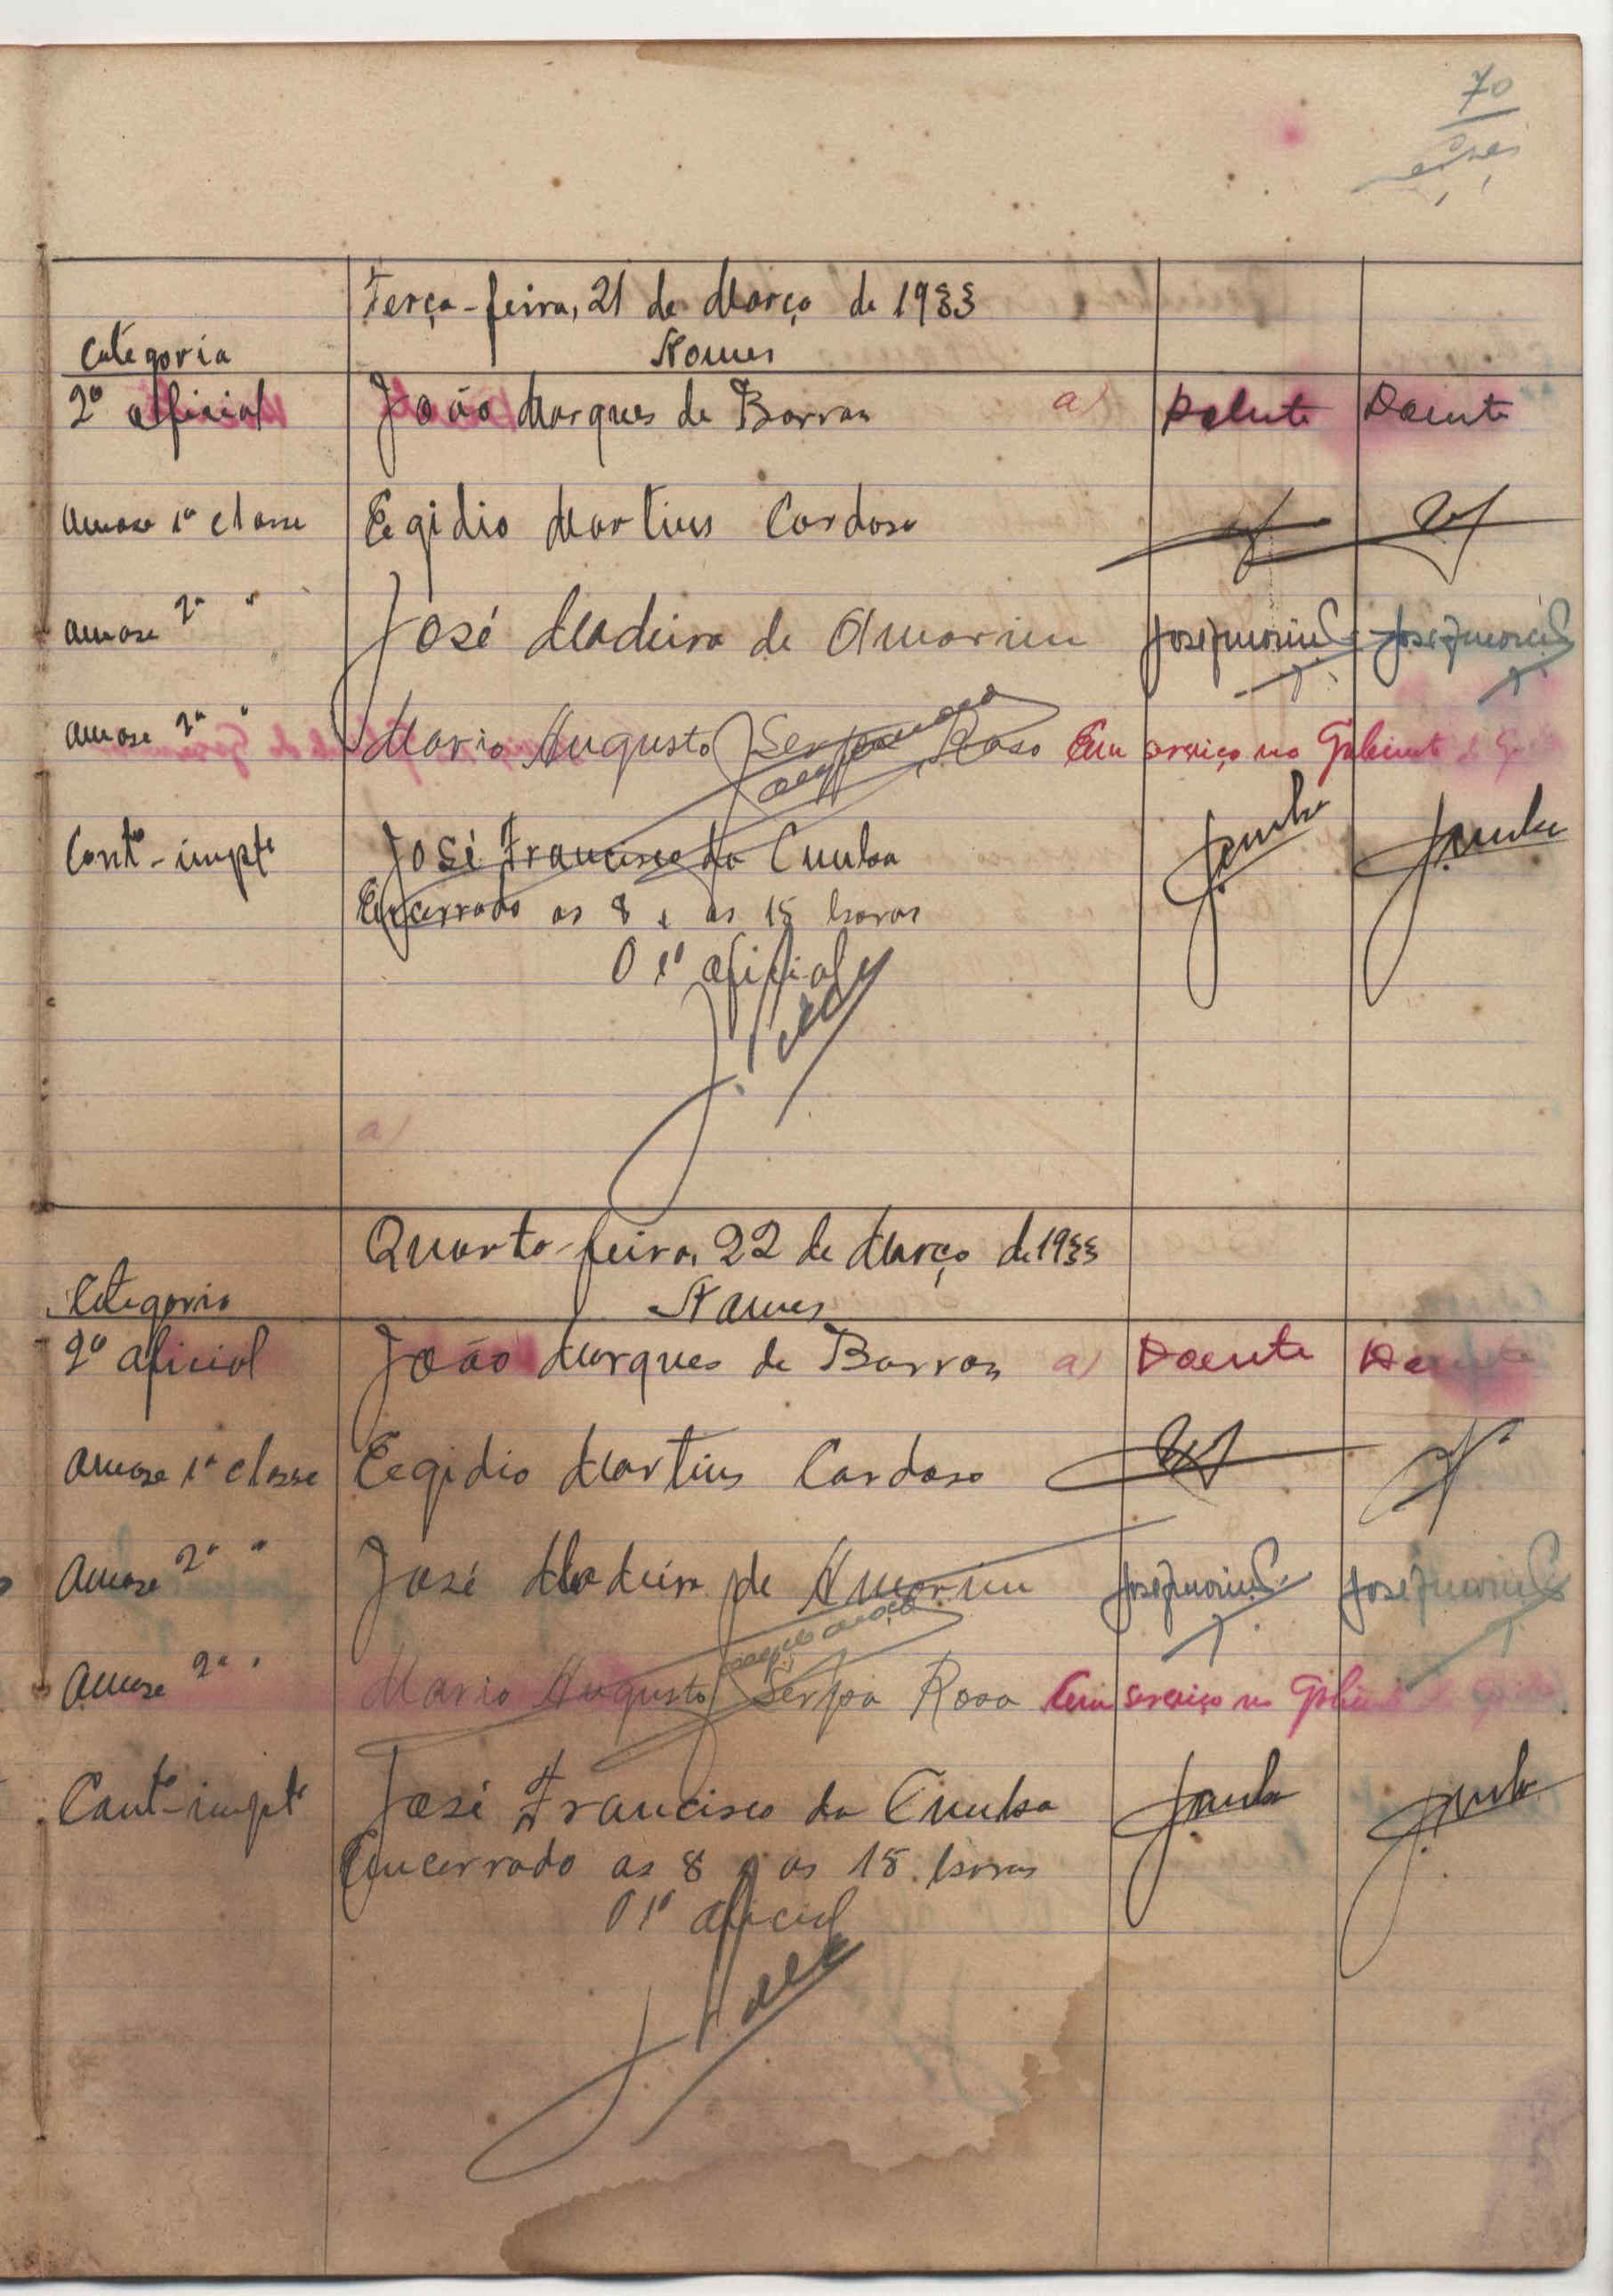 70
Terça-feira, 21 de Março de 1933
Categoria Nomes
2º oficial João Marques de Barros a) Doente Doente
1ª classe Egidio Martins Cardoso
2ª " José Madeira de Amorim José Amorim José Amorim
2ª " Mario Augusto Serpa Rosa Em serviço no Gabinete
Contº-impte José Francisco da Cunha JCunha JCunha
Encerrado as 8 e as 15 horas
O 1º oficial
a)
Quarta-feira, 22 de Março de 1933
Categoria Nomes
2º oficial João Marques de Barros a) Doente Doente
1ª classe Egidio Martins Cardoso
2ª " José Madeira de Amorim José Amorim José Amorim
2ª " Mario Augusto Serpa Rosa Em serviço no Gabinete
Contº-impte José Francisco da Cunha JCunha JCunha
Encerrado as 8 e as 15 horas
O 1º oficial